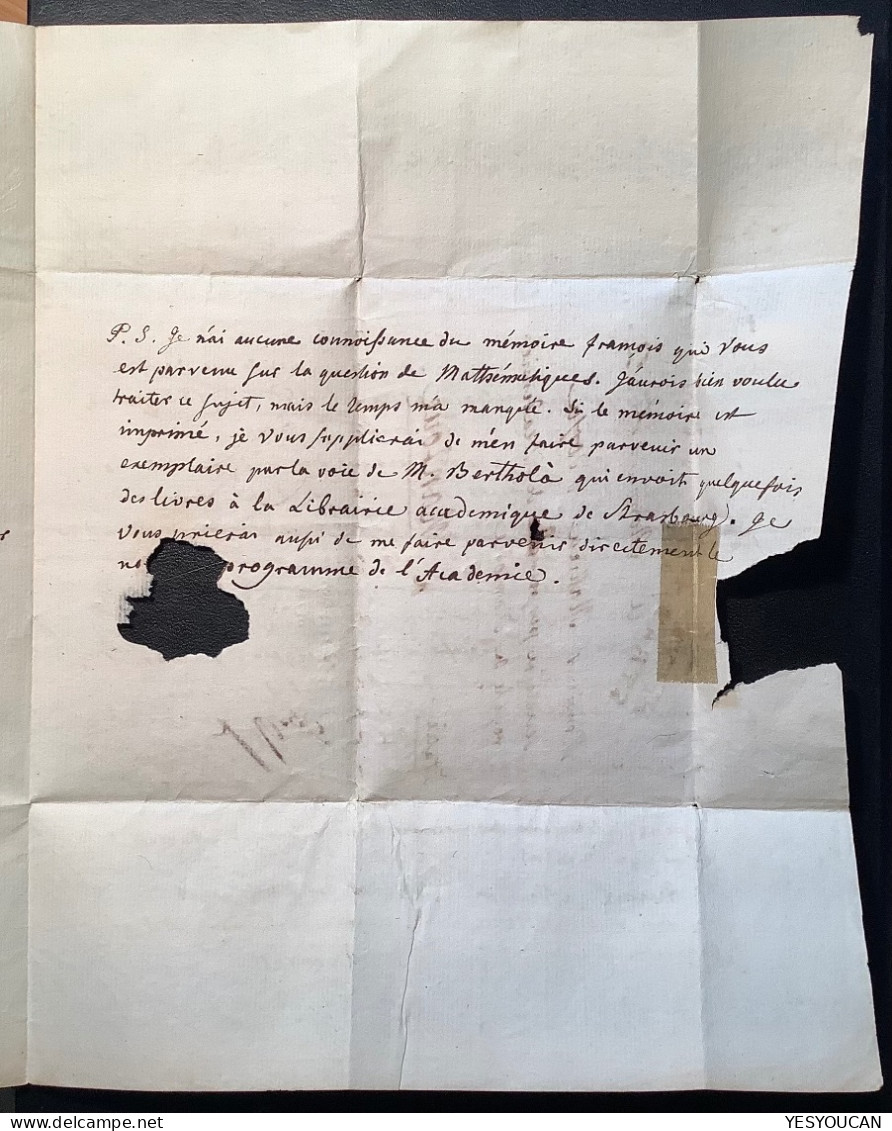 P. S. Je n'ai aucune connoissance du mémoire françois qui vous
est parvenu sur la question de Mathématiques. J'aurois bien voulu
traiter ce sujet, mais le temps m'a manqué. Si le mémoire est
imprimé, je vous supplierai de m'en faire parvenir un
exemplaire par la voie de M. Bertholà qui envoit quelquefois
des livres à la Librairie academique de Strasbourg. Je
vous prierai aussi de me faire parvenir directement le
programme de l'Academie.
YESYOUCAN